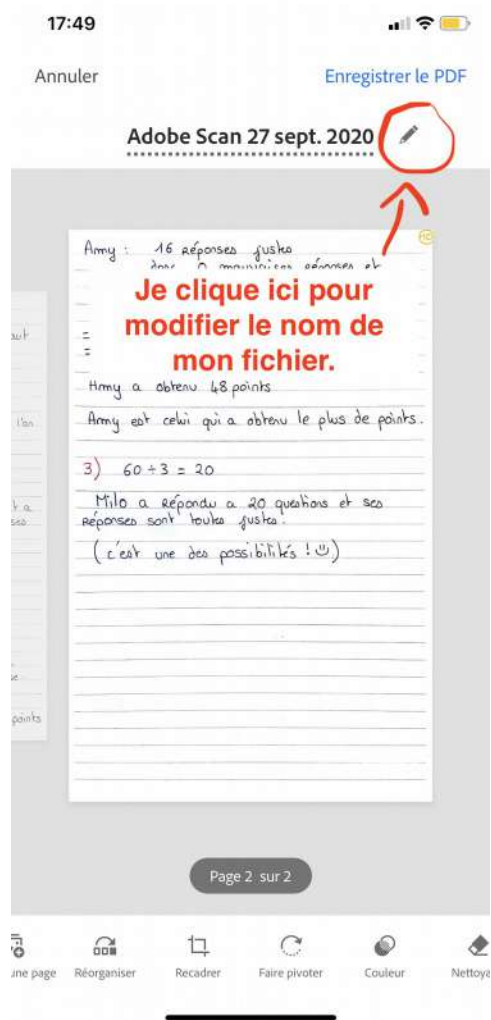 17:49
Annuler
Enregistrer le PDF
Adobe Scan 27 sept. 2020
Amy : 16 réponses justes
donc 0 mauvaises réponses et
Je clique ici pour
modifier le nom de
mon fichier.
=
=
Amy a obtenu 48 points
Amy est celui qui a obtenu le plus de points.
3) 60 ÷ 3 = 20
Milo a répondu a 20 questions et ses
réponses sont toutes justes.
(c'est une des possibilités !)
points
Page 2 sur 2
une page
Réorganiser
Recadrer
Faire pivoter
Couleur
Nettoya